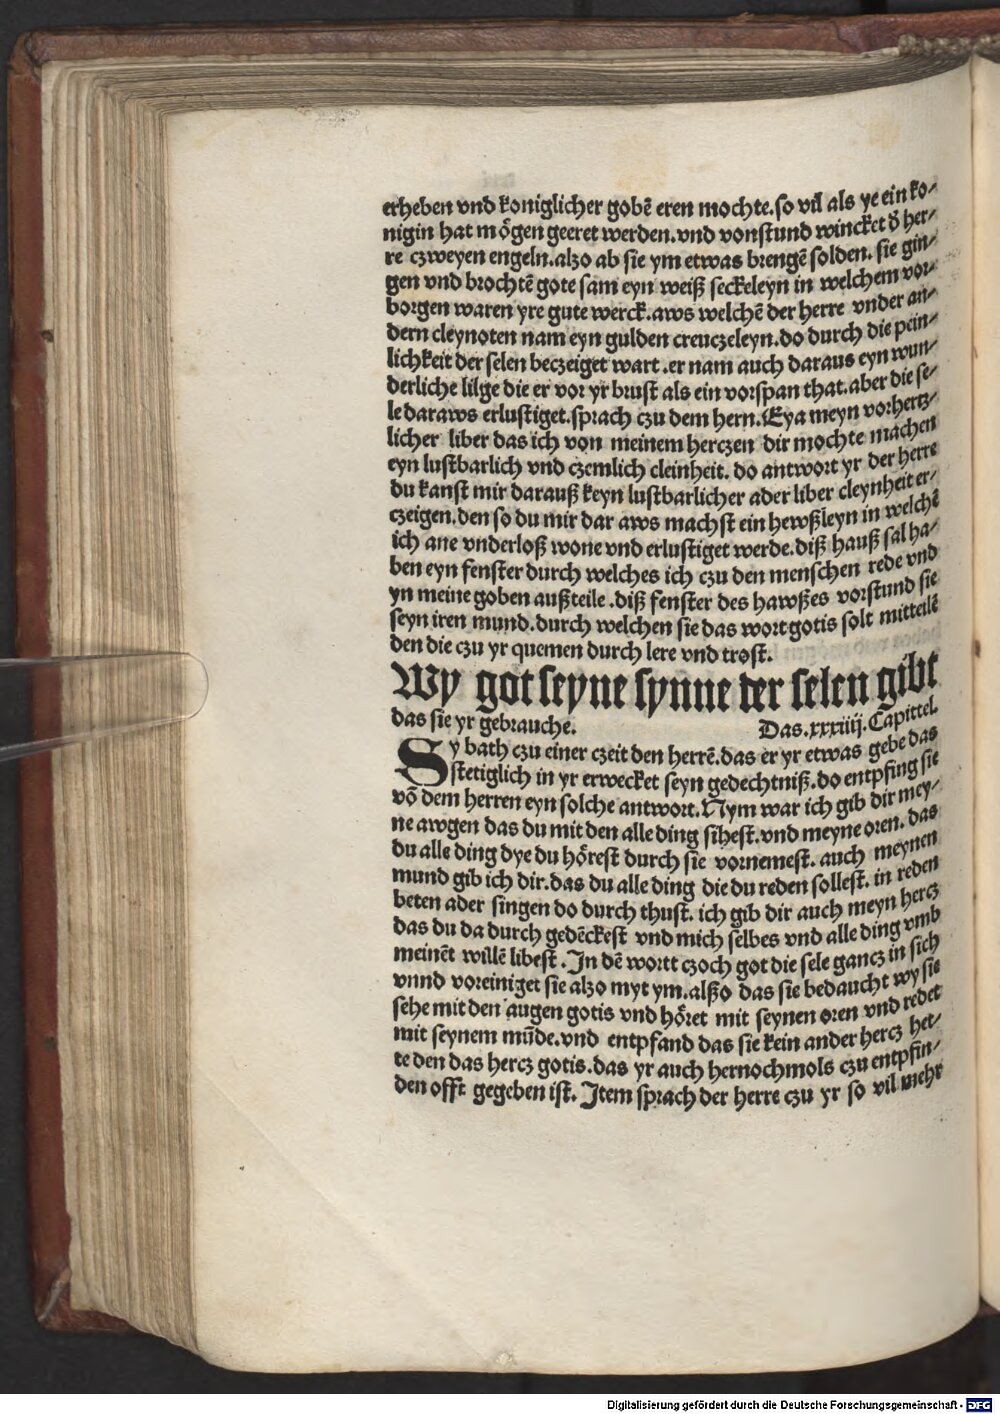 erheben vnd koniglicher gobē eren mochte. so vil als ye ein ko⸗
nigin hat mögen geeret werden. vnd vonstund wincket d̕ her⸗
re czweyen engeln. alzo ab sie ym etwas brengē solden. sie gin⸗
gen vnd brochtē gote sam eyn weiß seckeleyn in welchem vor⸗
borgen waren yre gute werck. aws welchē der herre vnder an⸗
dern cleynoten nam eyn gulden creuczeleyn. do durch die pein⸗
lichkeit der selen beczeiget wart. er nam auch daraus eyn wun⸗
derliche lilge die er vor yr brust als ein vorspan that. aber die se⸗
le daraws erlustiget. sprach czu dem hern. Eya meyn vorhertz⸗
licher liber das ich von meinem herczen dir mochte machen
eyn lustbarlich vnd czemlich cleinheit. do antwort yr der herre
du kanst mir darauß keyn lustbarlicher ader liber cleynheit er⸗
czeigen. den so du mir dar aws machst ein hewßleyn in welchē
ich ane vnderloß wone vnd erlustiget werde. diß hauß sal ha⸗
ben eyn fenster durch welches ich czu den menschen rede vnd
yn meine goben außteile. diß fenster des hawßes vorstund sie
seyn iren mund. durch welchen sie das wort gotis solt mitteilē
den die czu yr quemen durch lere vnd trost.
Wy got seyne synne der selen gibt
das sie yr gebrauche. Das. xxxiiij. Capittel.
Sy bath czu einer czeit den herrē. das er yr etwas gebe das
stetiglich in yr erwecket seyn gedechtniß. do entpfing sie
vō dem herren eyn solche antwort. Nym war ich gib dir mey⸗
ne awgen das du mit den alle ding sihest. vnd meyne oren. das
du alle ding dye du hörest durch sie vornemest. auch meynen
mund gib ich dir. das du alle ding die du reden sollest. in reden
beten ader singen do durch thust. ich gib dir auch meyn hercz
das du da durch gedēckest vnd mich selbes vnd alle ding vmb
meinēt willē libest. In dē wortt czoch got die sele gancz in sich
vnnd voreiniget sie alzo myt ym. alßo das sie bedaucht wy sie
sehe mit den augen gotis vnd höret mit seynen oren vnd redet
mit seynem mūde. vnd entpfand das sie kein ander hercz het⸗
te den das hercz gotis. das yr auch hernochmols czu entpfin⸗
den offt gegeben ist. Item sprach der herre czu yr so vil mehr
Digitalisierung gefördert durch die Deutsche Forschungsgemeinschaft - DFG